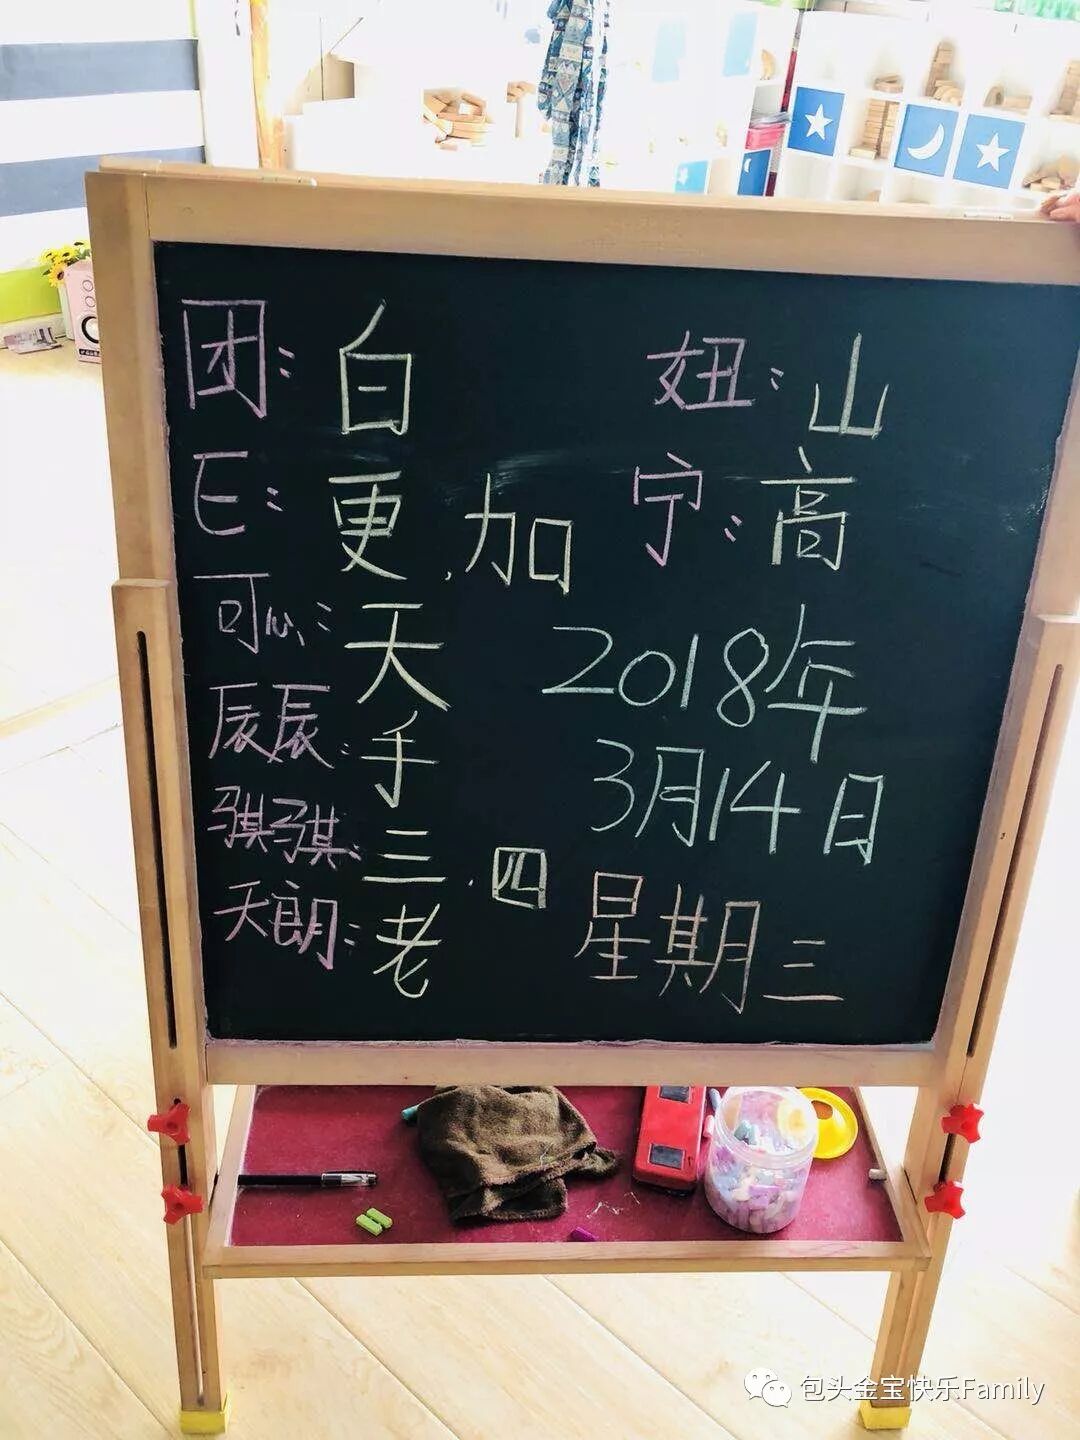 团：白
妞：山
E：更、加
宁：高
可心：天
2018年
辰辰：手
3月14日
骐骐：三、四
星期三
天朗：老
包头金宝快乐Family